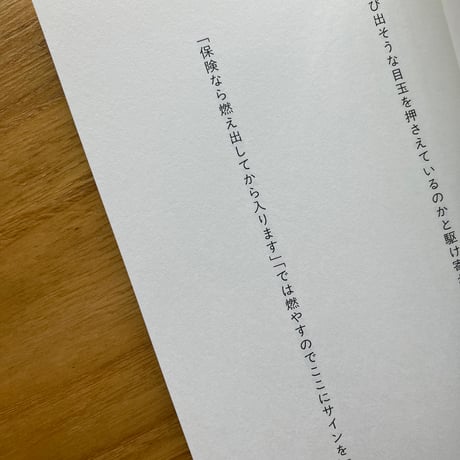 び出そうな目玉を押さえているのかと駆け寄
「保険なら燃え出してから入ります」「では燃やすのでここにサインを